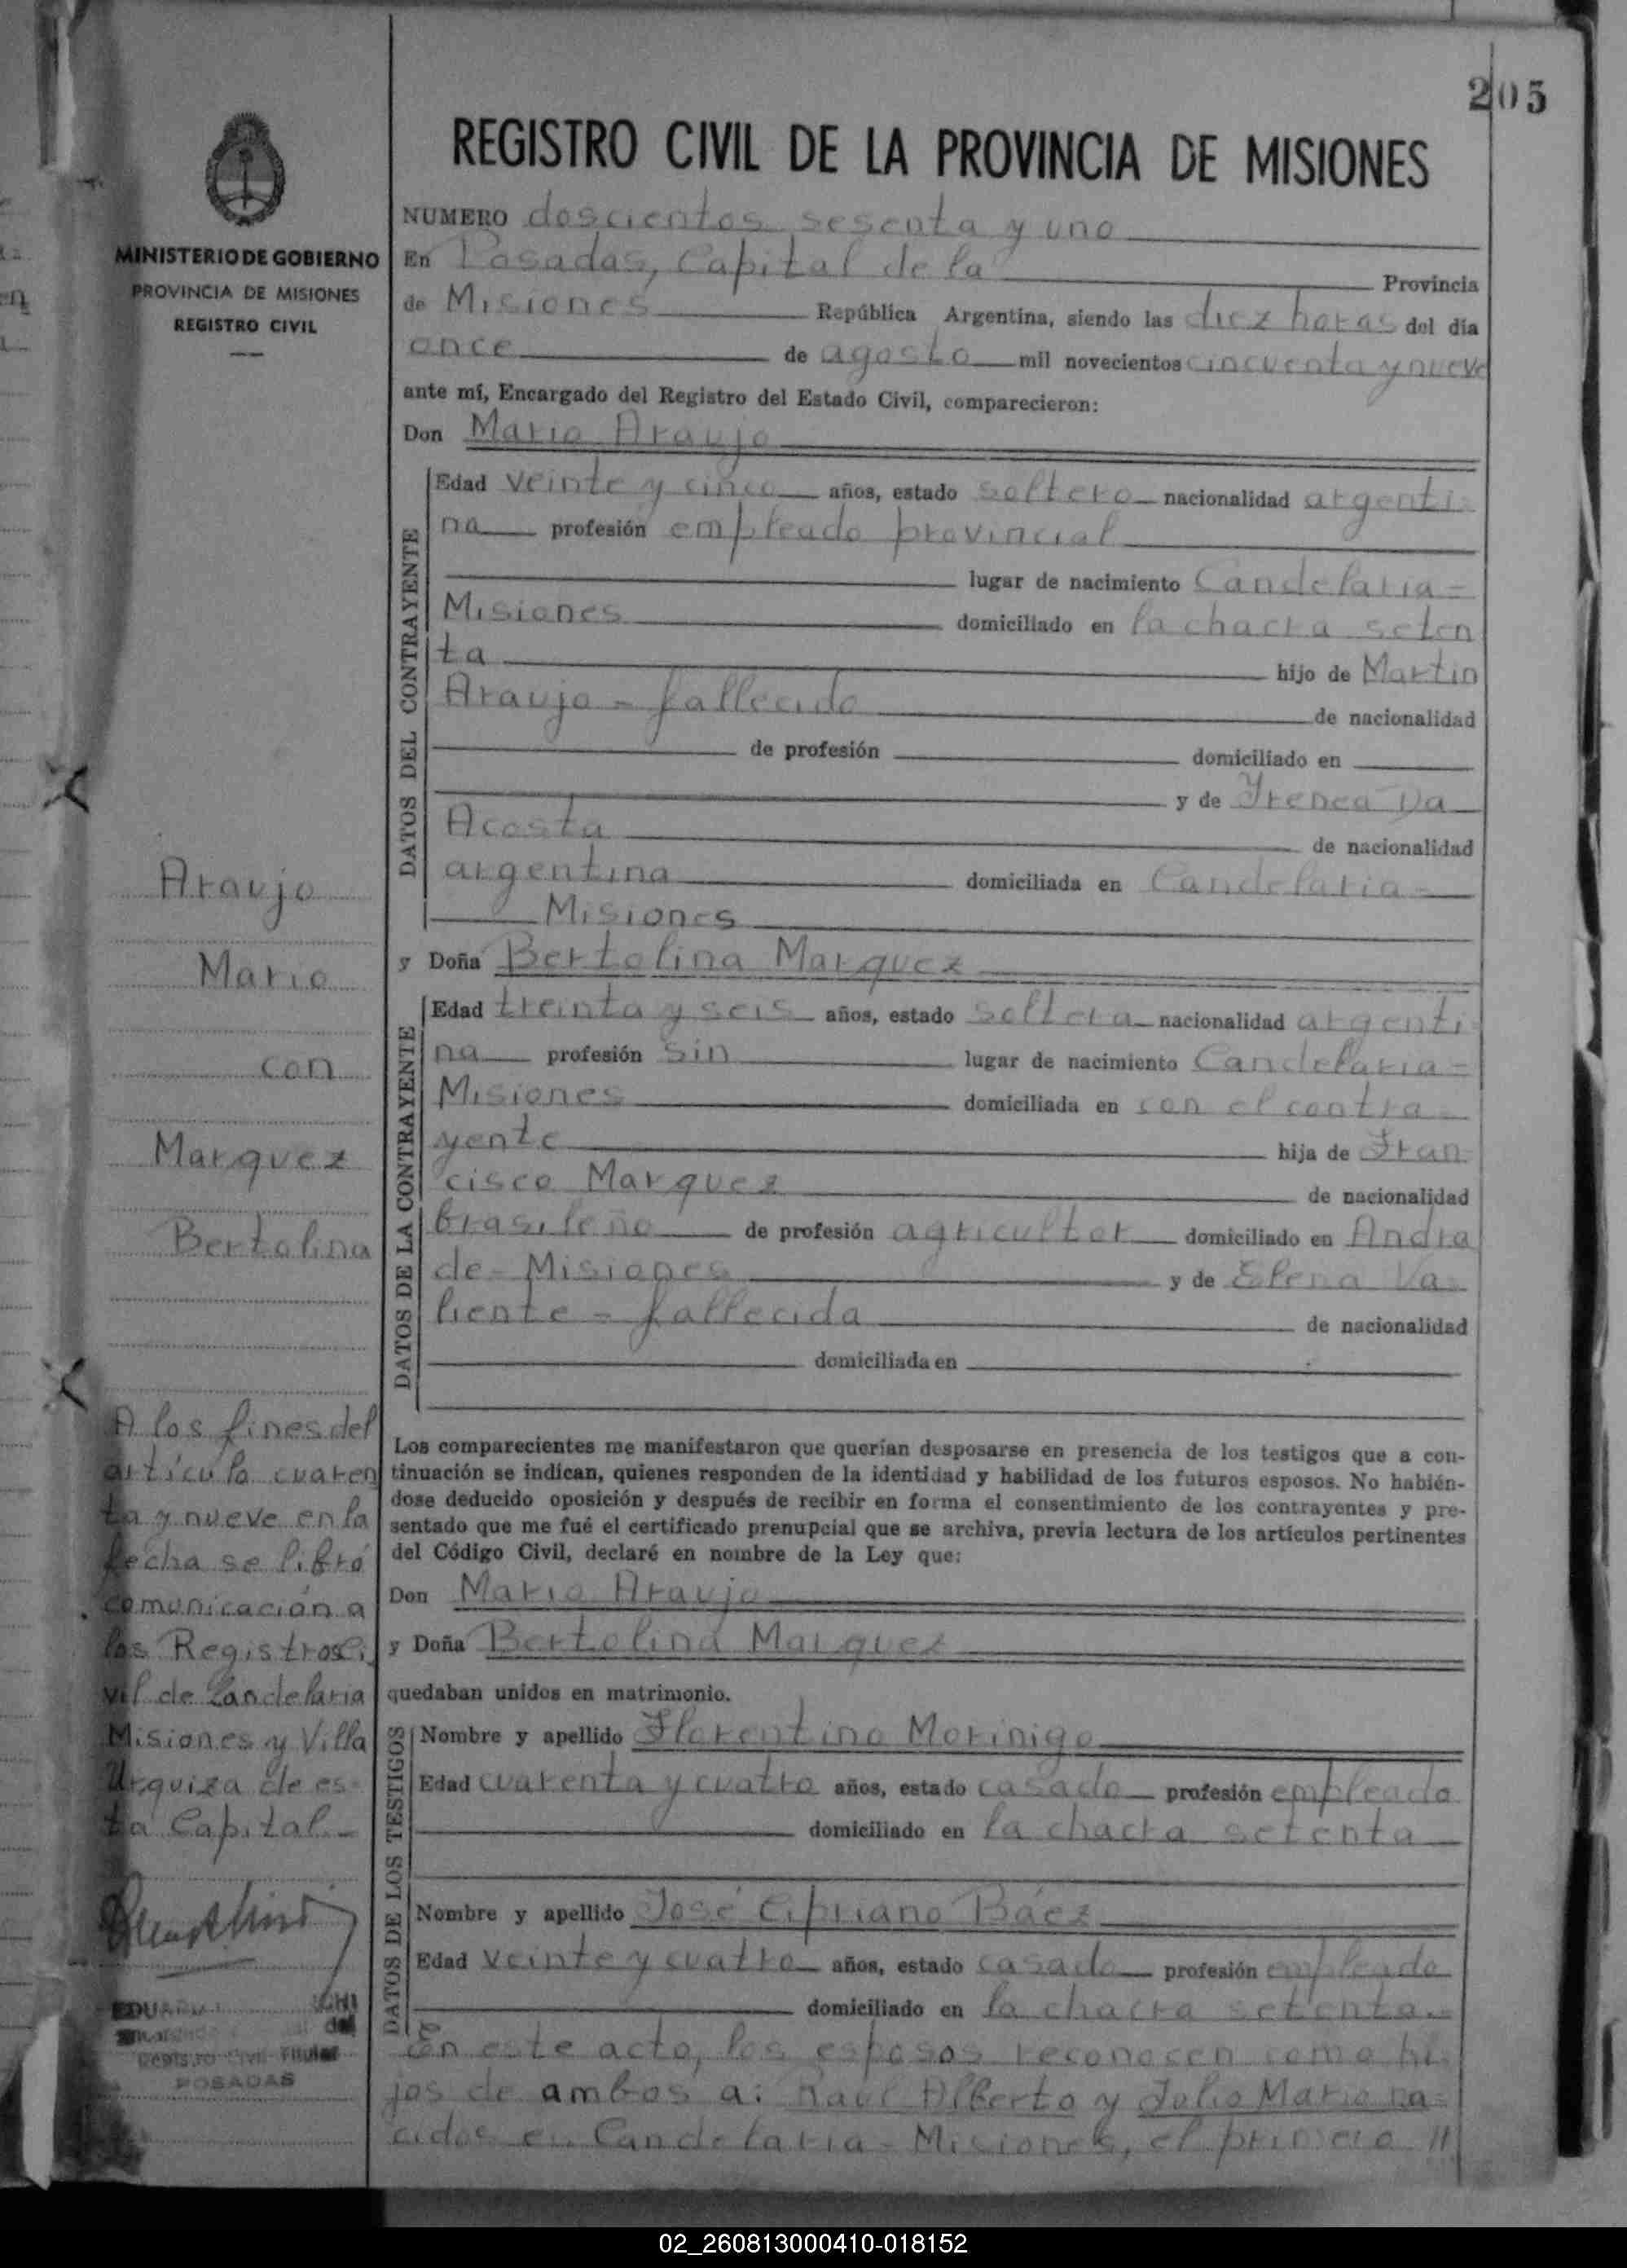 205
REGISTRO CIVIL DE LA PROVINCIA DE MISIONES
MINISTERIO DE GOBIERNO
PROVINCIA DE MISIONES
REGISTRO CIVIL
NUMERO doscientos sesenta y uno
En Posadas, Capital de la Provincia
de Misiones República Argentina, siendo las diez horas del día
once de agosto mil novecientos cincuenta y nueve
ante mí, Encargado del Registro del Estado Civil, comparecieron:
Don Mario Araujo
DATOS DEL CONTRAYENTE
Edad veinte y cinco años, estado soltero nacionalidad argenti-
na profesión empleado provincial
lugar de nacimiento Candelaria -
Misiones domiciliado en la chacra seten
ta hijo de Martin
Araujo - fallecido de nacionalidad
de profesión domiciliado en
y de Irenea Da
Acosta de nacionalidad
argentina domiciliada en Candelaria -
Misiones
y Doña Bertolina Marquez
DATOS DE LA CONTRAYENTE
Edad treinta y seis años, estado soltera nacionalidad argenti
na profesión sin lugar de nacimiento Candelaria -
Misiones domiciliada en con el contra
yente hija de Fran
cisco Marquez de nacionalidad
brasileño de profesión agricultor domiciliado en Andra
de - Misiones y de Elena Va-
liente - fallecida de nacionalidad
domiciliada en
Los comparecientes me manifestaron que querían desposarse en presencia de los testigos que a con-
tinuación se indican, quienes responden de la identidad y habilidad de los futuros esposos. No habién-
dose deducido oposición y después de recibir en forma el consentimiento de los contrayentes y pre-
sentado que me fué el certificado prenupcial que se archiva, previa lectura de los artículos pertinentes
del Código Civil, declaré en nombre de la Ley que:
Don Mario Araujo
y Doña Bertolina Marquez
quedaban unidos en matrimonio.
DATOS DE LOS TESTIGOS
Nombre y apellido Florentino Morinigo
Edad cuarenta y cuatro años, estado casado profesión empleado
domiciliado en la chacra setenta
Nombre y apellido José Cipriano Báez
Edad veinte y cuatro años, estado casado profesión empleado
domiciliado en la chacra setenta.
En este acto, los esposos reconocen como hi-
jos de ambos a: Raúl Alberto y Julio Mario na-
cidos en Candelaria - Misiones, el primero //
Araujo
Mario
con
Marquez
Bertolina
A los fines del
artículo cuaren
ta y nueve en la
fecha se libró
comunicación a
los Registros Ci
vil de Candelaria
Misiones y Villa
Urquiza de es-
ta Capital -
Registro Civil Titular
POSADAS
02_260813000410-018152